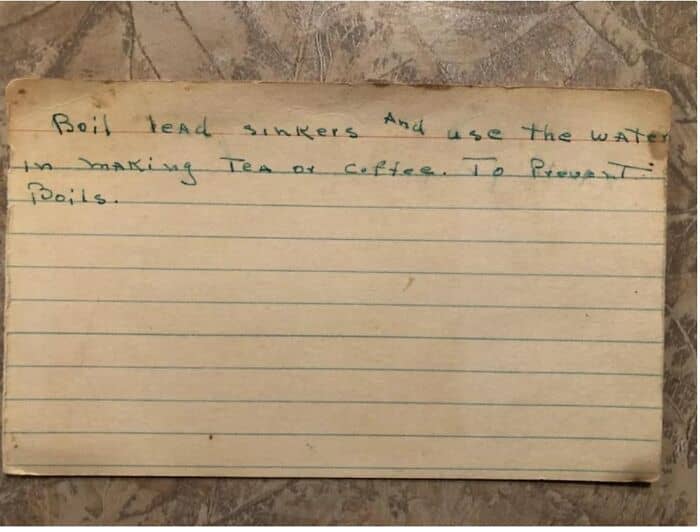 Boil lead sinkers And use the water
in making Tea or coffee. To Prevent
Boils.